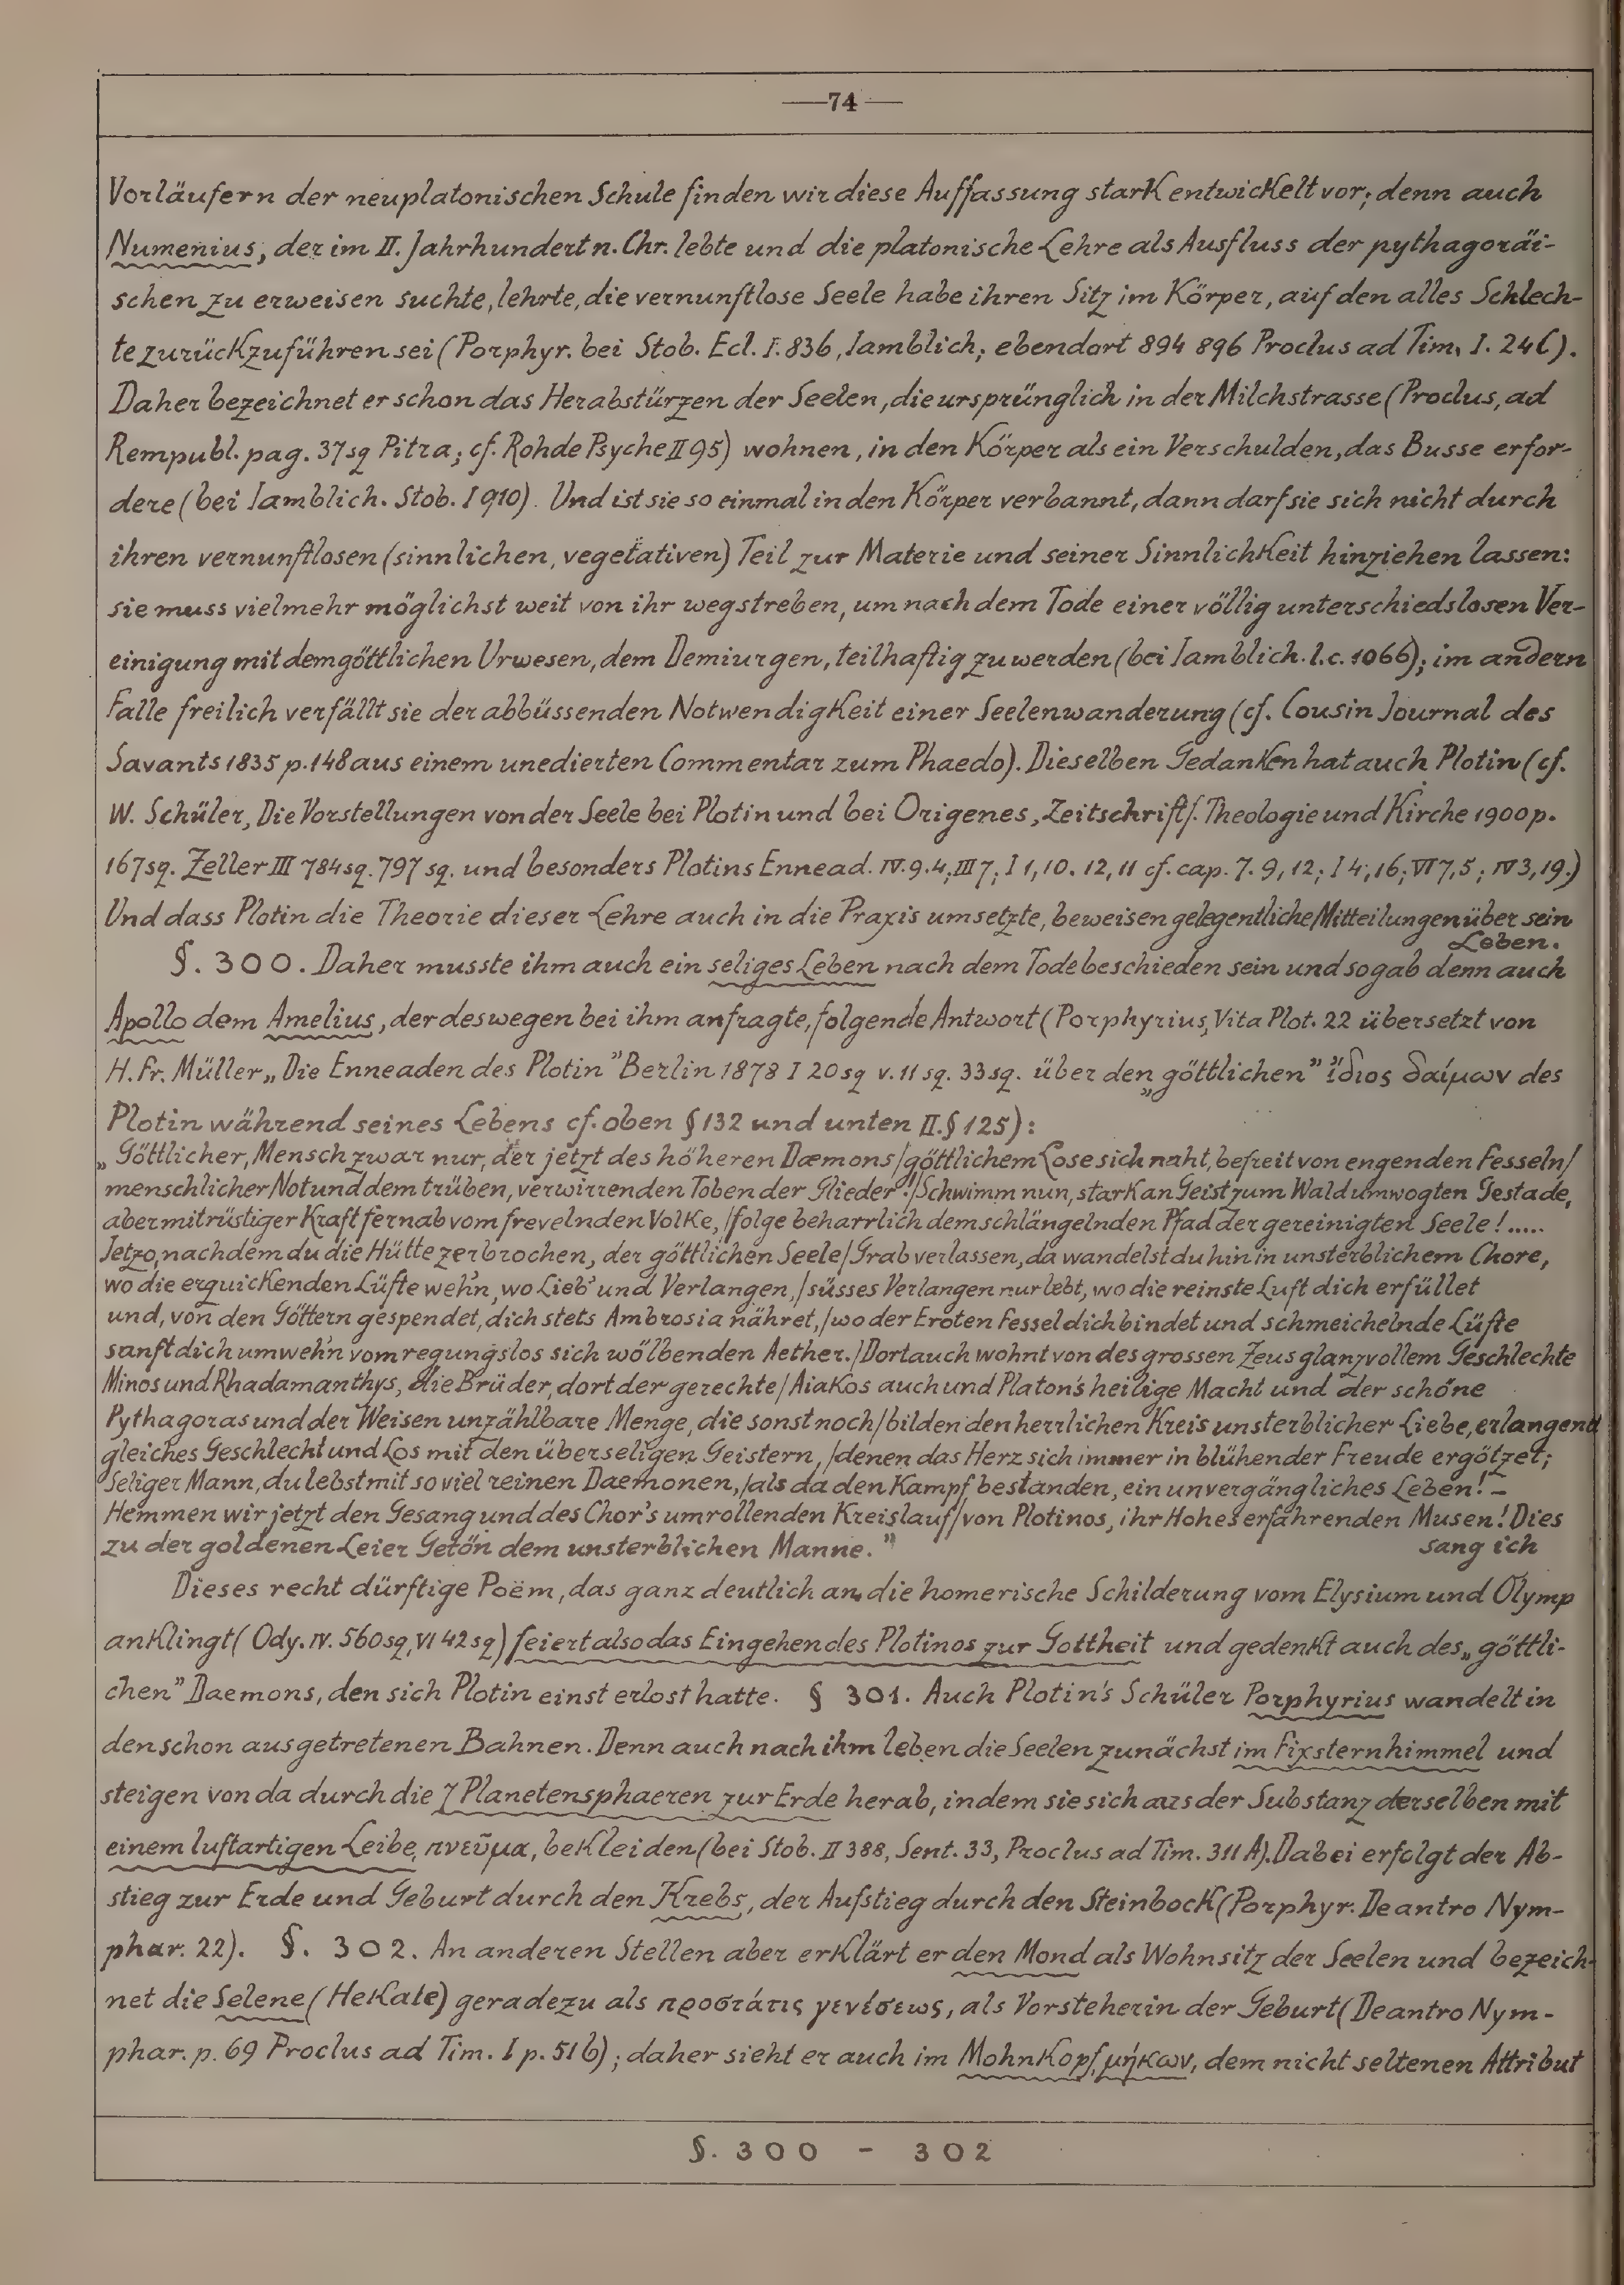 —74—
Vorläufern der neuplatonischen Schule finden wir diese Auffassung stark entwickelt vor; denn auch
Numenius, der im II. Jahrhundert n. Chr. lebte und die platonische Lehre als Ausfluss der pythagoräi-
schen zu erweisen suchte, lehrte, die vernunftlose Seele habe ihren Sitz im Körper, auf den alles Schlech-
te zurückzuführen sei (Porphyr. bei Stob. Ecl. I. 836, Iamblich, ebendort 894 896 Proclus ad Tim. I. 24C).
Daher bezeichnet er schon das Herabstürzen der Seelen, die ursprünglich in der Milchstrasse (Proclus, ad
Rempubl. pag. 37 sq Pitra; cf. Rohde Psyche II 95) wohnen, in den Körper als ein Verschulden, das Busse erfor-
dere (bei Iamblich. Stob. I 910). Und ist sie so einmal in den Körper verbannt, dann darf sie sich nicht durch
ihren vernunftlosen (sinnlichen, vegetativen) Teil zur Materie und seiner Sinnlichkeit hinziehen lassen:
sie muss vielmehr möglichst weit von ihr wegstreben, um nach dem Tode einer völlig unterschiedslosen Ver-
einigung mit dem göttlichen Urwesen, dem Demiurgen, teilhaftig zu werden (bei Iamblich. l.c. 1066); im andern
Falle freilich verfällt sie der abbüssenden Notwendigkeit einer Seelenwanderung (cf. Cousin Journal des
Savants 1835 p. 148 aus einem unedierten Commentar zum Phaedo). Dieselben Gedanken hat auch Plotin (cf.
W. Schüler, Die Vorstellungen von der Seele bei Plotin und bei Origenes, Zeitschrift f. Theologie und Kirche 1900 p.
167 sq. Zeller III 784 sq. 797 sq. und besonders Plotins Ennead. IV. 9. 4; III 7; I 1, 10. 12, 11 cf. cap. 7. 9, 12; I 4, 16; VI 7, 5; IV 3, 19.)
Und dass Plotin die Theorie dieser Lehre auch in die Praxis umsetzte, beweisen gelegentliche Mitteilungen über sein
Leben.
§. 300. Daher musste ihm auch ein seliges Leben nach dem Tode beschieden sein und so gab denn auch
Apollo dem Amelius, der deswegen bei ihm anfragte, folgende Antwort (Porphyrius, Vita Plot. 22 übersetzt von
H. Fr. Müller „Die Enneaden des Plotin" Berlin 1878 I 20 sq v. 11 sq. 33 sq. über den „göttlichen" ἴδιος δαίμων des
Plotin während seines Lebens cf. oben § 132 und unten II. § 125):
„Göttlicher, Mensch zwar nur, der jetzt des höheren Dæmons / göttlichem Lose sich naht, befreit von engenden Fesseln /
menschlicher Not und dem trüben, verwirrenden Toben der Glieder! / Schwimm nun, stark an Geist zum Wald umwogten Gestade,
aber mit rüstiger Kraft fernab vom frevelnden Volke, / folge beharrlich dem schlängelnden Pfad der gereinigten Seele! .....
Jetzo, nachdem du die Hütte zerbrochen, der göttlichen Seele / Grab verlassen, da wandelst du hin in unsterblichem Chore,
wo die erquickenden Lüfte weh'n, wo Lieb' und Verlangen, / süsses Verlangen nur lebt, wo die reinste Luft dich erfüllet
und, von den Göttern gespendet, dich stets Ambrosia nähret, / wo der Eroten Fessel dich bindet und schmeichelnde Lüfte
sanft dich umweh'n vom regungslos sich wölbenden Aether. / Dort auch wohnt von des grossen Zeus glanzvollem Geschlechte
Minos und Rhadamanthys, die Brüder, dort der gerechte / Aiakos auch und Platon's heilige Macht und der schöne
Pythagoras und der Weisen unzählbare Menge, die sonst noch / bilden den herrlichen Kreis unsterblicher Liebe, erlangend
gleiches Geschlecht und Los mit den überseligen Geistern, / denen das Herz sich immer in blühender Freude ergötzet;
Seliger Mann, du lebst mit so viel reinen Daemonen, / als da den Kampf bestanden, ein unvergängliches Leben! –
Hemmen wir jetzt den Gesang und des Chor's umrollenden Kreislauf / von Plotinos, ihr Hohes erfahrenden Musen! Dies
sang ich
zu der goldenen Leier Getön dem unsterblichen Manne."
Dieses recht dürftige Poëm, das ganz deutlich an die homerische Schilderung vom Elysium und Olymp
anklingt (Ody. IV. 560 sq, VI 42 sq) feiert also das Eingehen des Plotinos zur Gottheit und gedenkt auch des „göttli-
chen" Daemons, den sich Plotin einst erlost hatte. § 301. Auch Plotin's Schüler Porphyrius wandelt in
den schon ausgetretenen Bahnen. Denn auch nach ihm leben die Seelen zunächst im Fixsternhimmel und
steigen von da durch die 7 Planetensphaeren zur Erde herab, indem sie sich aus der Substanz derselben mit
einem luftartigen Leibe, πνεῦμα, bekleiden (bei Stob. II 388, Sent. 33, Proclus ad Tim. 311 A). Dabei erfolgt der Ab-
stieg zur Erde und Geburt durch den Krebs, der Aufstieg durch den Steinbock (Porphyr. De antro Nym-
phar. 22). §. 302. An anderen Stellen aber erklärt er den Mond als Wohnsitz der Seelen und bezeich-
net die Selene (Hekate) geradezu als προστάτις γενέσεως, als Vorsteherin der Geburt (De antro Nym-
phar. p. 69 Proclus ad Tim. I p. 51 b); daher sieht er auch im Mohnkopf, μήκων, dem nicht seltenen Attribut
§. 300 - 302